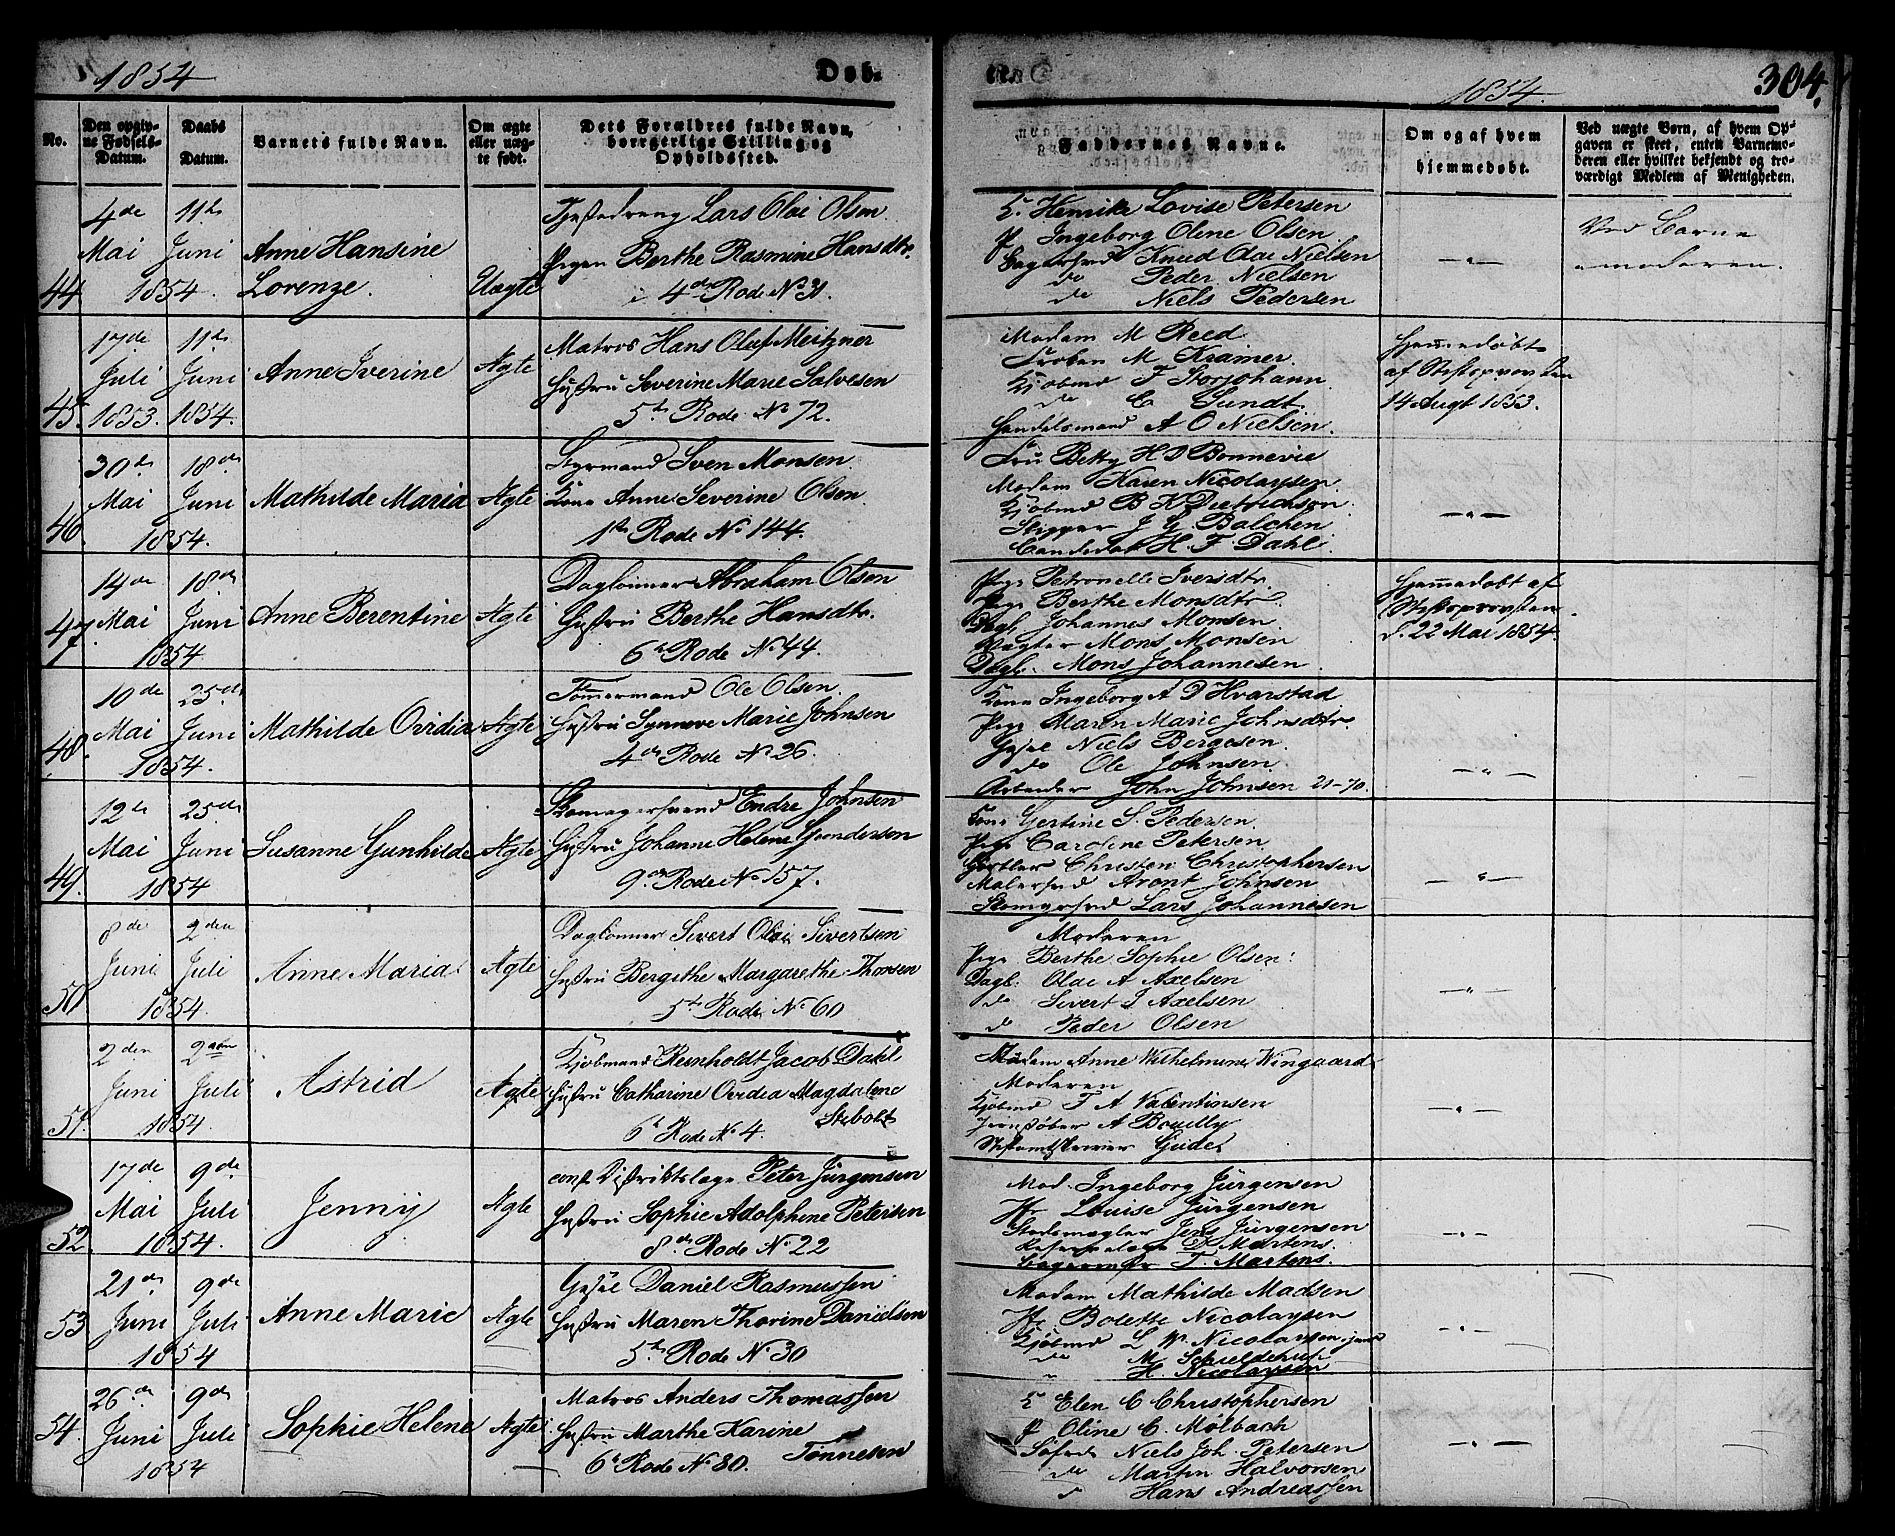 1854
Døb.
1854.
304.
No.
Den opgiv-
ne Fødsels-
Datum.
Daabs
Datum.
Barnets fulde Navn.
Om ægte
eller uæg-
te født.
Dets Forældres fulde Navn,
borgerlige Stilling og
Opholdssted.
Faddernes Navne.
Om og af hvem
hjemmedøbt.
Ved uægte Børn, af hvem Op-
gaven er skeet, enten Barnemo-
deren eller hvilket bekjendt og tro-
værdigt Medlem af Menigheden.
44.
4de
Mai
11te
Juni
1854.
Anne Hansine
Lorenze.
Uægte
Tjenstedreng Lars Olai Olsen.
Pigen Berthe Rasmine Hansdtr.
4de Rode No 31.
K. Henrike Lovise Petersen
P Ingeborg Oline Olsen
Bagersvd Knud Olai Nielsen
do Peder Nielsen
do Niels Pedersen
Ved Barne
moderen.
45.
17de
Juli
1853.
11te
Juni
1854.
Anne Iverine
Ægte
Matros Hans Oluf Meitzner
Hustru Severine Marie Salvesen
5te Rode No 72.
Madam M Reed
M Kramer
Kjøbmd F Storjohann
do C Sundt.
Handelsmand A O Nielsen.
Hjemmedøbt
af Stiftsprovsten
14 Augt 1853.
46.
30te
Mai
18de
Juni
1854.
Mathilde Maria
Ægte
Styrmand Sven Monsen.
Kone Anne Severine Olsen
1ste Rode No 144.
Fru Betty H D Bonnevie
Madam Karen Nicolaysen
Kjøbmd B K Dietrichson
Skipper J G Balchen
Candidat H. F. Dahl.
47.
14de
Mai
18de
Juni
1854
Anne Berentine
Ægte
Daglønner Abraham Olsen
Hustru Berthe Hansdtr.
6te Rode No 44.
Pige Petronelle Iversdtr
Pige Berthe Monsdtr.
Dagl. Johannes Monsen
Vægter Mons Monsen
Dagl. Mons Johannesen
Hjemmedøbt af
Stiftsprovsten
d. 22 Mai 1854.
48.
10de
Mai
25de
Juni
1854.
Mathilde Ovidia
Ægte
Tømmermand Ole Olsen.
Hustru Synneve Marie Johnsen
4de Rode No 26.
Kone Ingeborg A D Hvarstad
Pige Maren Marie Johnsdtr.
Gesel Niels Bergesen.
do Ole Johnsen.
Arbeider John Johnsen 21-70.
49.
12te
Mai
25de
Juni
1854
Susanne Gunhilde
Ægte
Skomagersvend Endre Johnsen
Hustru Johanne Helene Gundersen
9de Rode No 157.
Kone Gertine S. Pedersen.
Pige Caroline Petersen
Gjørtler Christen Christophersen
Malersvd Aront Johnsen
Skomgrsvd Lars Johannesen
50.
8de
Juni
2den
Juli
1854
Anne Maria
Ægte
Daglønner Sivert Olai Sivertsen
Hustru Bergithe Margarethe Thorsen
5te Rode No 60
Moderen
Pige Berthe Sophie Olsen.
Dagl. Olai A Axelsen
do Sivert I Axelsen
do Peder Olsen
51.
2den
Juni
2den
Juli
1854.
Astrid
Ægte
Kjøbmand Reinholdt Jacob Dahl
Hustru Catharine Ovidia Magdalene
Stibolt
6te Rode No 4.
Madam Anne Wilhelmine Wingaard
Moderen
Kjøbmd F A Valentinsen
Jernstøber A Bouilly
Stiftamtskriver Gjede
52.
17de
Mai
9de
Juli
1854.
Jenny
Ægte
const Distriktslæge Peter Jürgensen
Hustru Sophie Adolphine Petersen
8de Rode No 22
Mad. Ingeborg Jürgensen
Louise Jürgensen
Stadsmægler Jens Jürgensen
D Martens.
T. Martens.
53
21de
Juni
9de
Juli
1854
Anne Marie
Ægte
Gesel Daniel Rasmussen
Hustru Maren Thorine Danielsen
5te Rode No 30
Madam Mathilde Madsen
Bolette Nicolaysen
Kjøbmd L W Nicolaysen junr
do M Schjelderup
" H. Nicolaysen
54.
26de
Juni
9de
Juli
1854
Sophie Helene
Ægte
Matros Anders Thomassen
Hustru Marthe Karine
Tønnesen
6te Rode No 80.
K Elen C Christophersen
P Oline C. Mølbach
Søfd Niels Joh. Petersen
do Martin Halvorsen
d Hans Andreassen